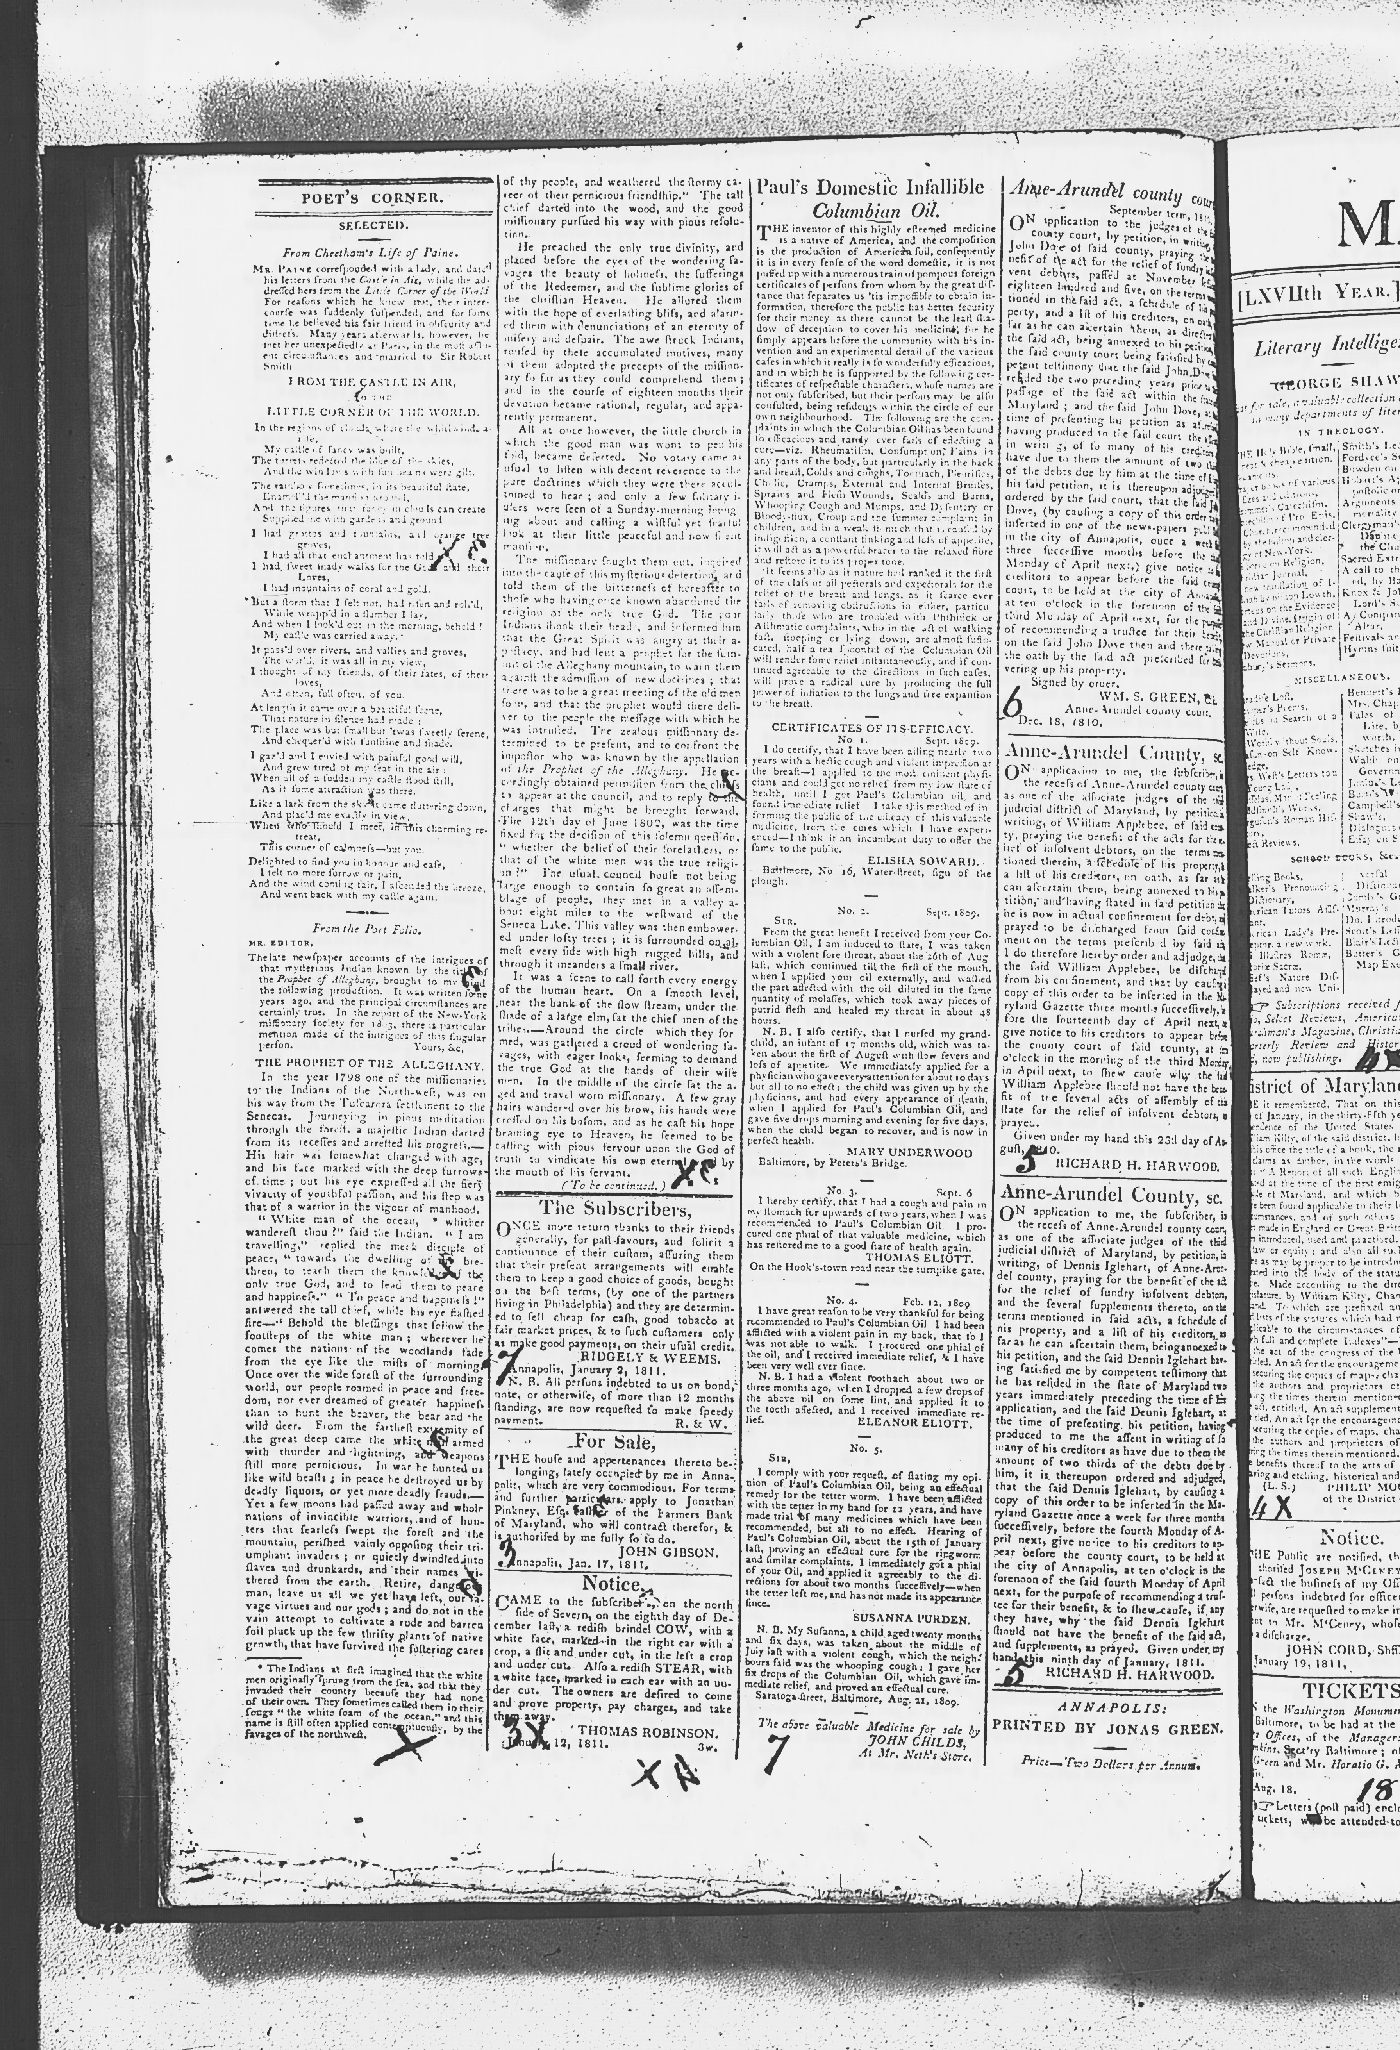 POET'S CORNER.
SELECTED.
From Cheetham's Life of Paine.
MR. PAINE corresponded with a lady, and dated
his letters from the Castle in Air, while she ad-
dressed hers from the Little Corner of the World
For reasons which he knew not, their inter-
course was suddenly suspended, and for some
time he believed his fair friend in obscurity and
distress. Many years afterwards, however, he
met her unexpectedly at Paris, in the most afflu-
ent circumstances and married to Sir Robert
Smith
FROM THE CASTLE IN AIR,
TO THE
LITTLE CORNER OF THE WORLD.
In the regions of clouds, where the whirlwinds a-
rise,
My castle of fancy was built,
The turrets reflected the blue of the skies,
And the windows with sun beams were gilt.
The rainbow sometimes, in its beautiful state,
Enamel'd the mansion around,
And the figures that fancy in clouds can create
Supplied me with gardens and ground
I had grottos and fountains, and orange tree
groves,
I had all that enchantment has told
I had sweet shady walks for the Gods and their
Loves,
I had mountains of coral and gold.
But a storm that I felt not, had risen and roll'd,
While wrapp'd in a slumber I lay,
And when I look'd out in the morning, behold!
My castle was carried away.
It pass'd over rivers, and vallies and groves,
The world, it was all in my view,
I thought of my friends, of their fates, of their
loves,
And often, full often, of you.
At length it came over a beautiful scene,
That nature in silence had made;
The place was but small but 'twas sweetly serene,
And chequer'd with sunshine and shade.
I gaz'd and I envied with painful good will,
And grew tired of my seat in the air;
When all of a sudden my castle stood still,
As if some attraction was there.
Like a lark from the sky it came fluttering down,
And plac'd me exactly in view,
When who should I meet, in this charming re-
treat,
This corner of calmness—but you.
Delighted to find you in honour and ease,
I felt no more sorrow or pain,
And the wind coming fair, I ascended the breeze,
And went back with my castle again.
From the Port Folio.
MR. EDITOR,
The late newspaper accounts of the intrigues of
that mysterious Indian known by the title of
the Prophet of Alleghany, brought to my mind
the following production. It was written some
years ago, and the principal circumstances are
certainly true. In the report of the New-York
missionary society for 1803, there is particular
mention made of the intrigues of this singular
person. Yours, &c.
THE PROPHET OF THE ALLEGHANY.
In the year 1798 one of the missionaries
to the Indians of the North-west, was on
his way from the Tuscarora settlement to the
Senecas. Journeying in pious meditation
through the forest, a majestic Indian darted
from its recesses and arrested his progress.—
His hair was somewhat changed with age,
and his face marked with the deep furrows
of time; but his eye expressed all the fiery
vivacity of youthful passion, and his step was
that of a warrior in the vigour of manhood.
" White man of the ocean, * whither
wanderest thou?" said the Indian. " I am
travelling," replied the meek disciple of
peace, " towards the dwelling of thy bre-
thren, to teach them the knowledge of the
only true God, and to lead them to peace
and happiness." " To peace and happiness!"
answered the tall chief, while his eye flashed
fire—" Behold the blessings that follow the
footsteps of the white man; wherever he
comes the nations of the woodlands fade
from the eye like the mists of morning.
Once over the wide forest of the surrounding
world, our people roamed in peace and free-
dom, nor ever dreamed of greater happiness
than to hunt the beaver, the bear and the
wild deer. From the farthest extremity of
the great deep came the white man armed
with thunder and lightning, and weapons
still more pernicious. In war he hunted us
like wild beasts; in peace he destroyed us by
deadly liquors, or yet more deadly frauds.—
Yet a few moons had passed away and whole
nations of invincible warriors, and of hun-
ters that fearless swept the forest and the
mountain, perished vainly opposing their tri-
umphant invaders; or quietly dwindled into
slaves and drunkards, and their names wi-
thered from the earth. Retire, dangerous
man, leave us all we yet have left, our sa-
vage virtues and our gods; and do not in the
vain attempt to cultivate a rude and barren
soil pluck up the few thrifty plants of native
growth, that have survived the fostering cares
* The Indians at first imagined that the white
men originally sprung from the sea, and that they
invaded their country because they had none
of their own. They sometimes called them in their
songs " the white foam of the ocean," and this
name is still often applied contemptuously, by the
savages of the northwest.
of thy people, and weathered the stormy ca-
reer of their pernicious friendship." The tall
chief darted into the wood, and the good
missionary pursued his way with pious resolu-
tion.
He preached the only true divinity, and
placed before the eyes of the wondering sa-
vages the beauty of holiness, the sufferings
of the Redeemer, and the sublime glories of
the christian Heaven. He allured them
with the hope of everlasting bliss, and alarm-
ed them with denunciations of an eternity of
misery and despair. The awe struck Indians,
roused by these accumulated motives, many
of them adopted the precepts of the mission-
ary so far as they could comprehend them;
and in the course of eighteen months their
devotion became rational, regular, and appa-
rently permanent.
All at once however, the little church in
which the good man was wont to pen his
fold, became deserted. No votary came as
usual to listen with decent reverence to the
pure doctrines which they were there accus-
tomed to hear; and only a few solitary i-
dlers were seen of a Sunday-morning loung-
ing about and casting a wistful yet fearful
look at their little peaceful and now silent
mansion.
The missionary sought them out, inquired
into the cause of this mysterious desertion, and
told them of the bitterness of hereafter to
those who having once known abandoned the
religion of the only true God. The poor
Indians shook their heads, and informed him
that the Great Spirit was angry at their a-
postacy, and had sent a prophet for the sum-
mit of the Alleghany mountain, to warn them
against the admission of new doctrines; that
there was to be a great meeting of the old men
soon, and that the prophet would there deli-
ver to the people the message with which he
was intrusted. The zealous missionary de-
termined to be present, and to confront the
impostor who was known by the appellation
of the Prophet of the Alleghany. He ac-
cordingly obtained permission from the chiefs
to appear at the council, and to reply to the
charges that might be brought forward.
The 12th day of June 1802, was the time
fixed for the decision of this solemn question,
" whether the belief of their forefathers, or
that of the white men was the true religi-
on?" The usual council house not being
large enough to contain so great an assem-
blage of people, they met in a valley a-
bout eight miles to the westward of the
Seneca Lake. This valley was then embower-
ed under lofty trees; it is surrounded on al-
most every side with high rugged hills, and
through it meanders a small river.
It was a scene to call forth every energy
of the human heart. On a smooth level,
near the bank of the slow stream, under the
shade of a large elm, sat the chief men of the
tribes.—Around the circle which they for-
med, was gathered a croud of wondering sa-
vages, with eager looks, seeming to demand
the true God at the hands of their wise
men. In the middle of the circle sat the a-
ged and travel worn missionary. A few gray
hairs wandered over his brow, his hands were
crossed on his bosom, and as he cast his hope
beaming eye to Heaven, he seemed to be
calling with pious fervour upon the God of
truth to vindicate his own eternal by
the mouth of his servant.
(To be continued.)
The Subscribers,
ONCE more return thanks to their friends
generally, for past favours, and solicit a
continuance of their custom, assuring them
that their present arrangements will enable
them to keep a good choice of goods, bought
on the best terms, (by one of the partners
living in Philadelphia) and they are determin-
ed to sell cheap for cash, good tobacco at
fair market prices, & to such customers only
as make good payments, on their usual credit.
RIDGELY & WEEMS.
7
Annapolis, January 2, 1811.
N. B. All persons indebted to us on bond,
note, or otherwise, of more than 12 months
standing, are now requested to make speedy
payment. R. & W.
For Sale,
THE house and appertenances thereto be-
longing, lately occupied by me in Anna-
polis, which are very commodious. For terms
and further particulars apply to Jonathan
Pinkney, Esq. cashier of the Farmers Bank
of Maryland, who will contract therefor, &
is authorised by me fully so to do.
JOHN GIBSON.
3
Annapolis, Jan. 17, 1811.
Notice.
CAME to the subscriber's, on the north
side of Severn, on the eighth day of De-
cember last, a redish brindel COW, with a
white face, marked in the right ear with a
crop, a slit and under cut, in the left a crop
and under cut. Also a redish STEAR, with
a white face, marked in each ear with an un-
der cut. The owners are desired to come
and prove property, pay charges, and take
them away.
3X THOMAS ROBINSON.
January 12, 1811. 3w.
Paul's Domestic Infallible
Columbian Oil.
THE inventor of this highly esteemed medicine
is a native of America, and the composition
is the production of American soil, consequently
it is in every sense of the word domestic, it is not
puffed up with a numerous train of pompous foreign
certificates of persons from whom by the great dis-
tance that separates us 'tis impossible to obtain in-
formation, therefore the public has better security
for their money as there cannot be the least sha-
dow of deception to cover his medicine, for he
simply appears before the community with his in-
vention and an experimental detail of the various
cases in which it really is so wonderfully efficacious,
and in which he is supported by the following cer-
tificates of respectable characters, whose names are
not only subscribed, but their persons may be also
consulted, being residents within the circle of our
own neighbourhood. The following are the com-
plaints in which the Columbian Oil has been found
so efficacious and rarely ever fails of effecting a
cure—viz. Rheumatism, Consumption, Pains in
any parts of the body, but particularly in the back
and breast, Colds and coughs, Toothach, Pleurisies,
Cholic, Cramps, External and Internal Bruises,
Sprains and Flesh Wounds, Scalds and Burns,
Whooping Cough and Mumps, and Dysentery or
Bloody-flux, Croup and the summer complaint in
children, and in a weak stomach that is caused by
indigestion, a constant sinking and loss of appetite,
it will act as a powerful bracer to the relaxed fibre
and restore it to its proper tone.
It seems also as if nature had ranked it the first
of the class of all pectorals and expectorals for the
relief of the breast and lungs, as it scarce ever
fails of removing obstructions in either, particu-
larly those who are troubled with Phthisick or
Asthmatic complaints, who in the act of walking
fast, stooping or lying down, are almost suffo-
cated, half a tea spoonful of the Columbian Oil
will render some relief instantaneously, and if con-
tinued agreeable to the directions in such cases,
will prove a radical cure by producing the full
power of inflation to the lungs and free expansion
to the breast.
CERTIFICATES OF ITS EFFICACY.
No 1. Sept. 1809.
I do certify, that I have been ailing nearly two
years with a hectic cough and violent impression at
the breast—I applied to the most eminent physi-
cians and could get no relief from my low state of
health, until I got Paul's Columbian oil, and
found immediate relief. I take this method of in-
forming the public of the efficacy of this valuable
medicine, from the cures which I have experi-
enced—I think it an incumbent duty to offer the
same to the public.
ELISHA SOWARD.
Baltimore, No 16, Water-street, sign of the
plough.
No. 2. Sept. 1809.
Sir,
From the great benefit I received from your Co-
lumbian Oil, I am induced to state, I was taken
with a violent sore throat, about the 26th of Aug
last, which continued till the first of the month,
when I applied your oil externally, and washed
the part affected with the oil diluted in the same
quantity of molasses, which took away pieces of
putrid flesh and healed my throat in about 48
hours.
N. B. I also certify, that I nursed my grand-
child, an infant of 17 months old, which was ta-
ken about the first of August with slow fevers and
loss of appetite. We immediately applied for a
physician who gave every attention for about 10 days
but all to no effect; the child was given up by the
physicians, and had every appearance of death,
when I applied for Paul's Columbian Oil, and
gave five drops morning and evening for five days,
when the child began to recover, and is now in
perfect health.
MARY UNDERWOOD
Baltimore, by Peters's Bridge.
No. 3. Sept. 6
I hereby certify, that I had a cough and pain in
my stomach for upwards of two years, when I was
recommended to Paul's Columbian Oil. I pro-
cured one phial of that valuable medicine, which
has restored me to a good state of health again.
THOMAS ELIOTT.
On the Hook's-town road near the turnpike gate.
No. 4. Feb. 12, 1809
I have great reason to be very thankful for being
recommended to Paul's Columbian Oil. I had been
afflicted with a violent pain in my back, that so I
was not able to walk. I procured one phial of
the oil, and I received immediate relief, & I have
been very well ever since.
N. B. I had a violent toothach about two or
three months ago, when I dropped a few drops of
the above oil on some lint, and applied it to
the tooth affected, and I received immediate re-
lief. ELEANOR ELIOTT.
No. 5.
Sir,
I comply with your request, of stating my opi-
nion of Paul's Columbian Oil, being an effectual
remedy for the tetter worm. I have been afflicted
with the tetter in my hand for 12 years, and have
made trial of many medicines which have been
recommended, but all to no effect. Hearing of
Paul's Columbian Oil, about the 15th of January
last, proving an effectual cure for the ringworm
and similar complaints. I immediately got a phial
of your Oil, and applied it agreeably to the di-
rections for about two months successively—when
the tetter left me, and has not made its appearance
since.
SUSANNA PURDEN.
N. B. My Susanna, a child aged twenty months
and six days, was taken about the middle of
July last with a violent cough, which the neigh-
bours said was the whooping cough; I gave her
six drops of the Columbian Oil, which gave im-
mediate relief, and proved an effectual cure.
Saratoga-street, Baltimore, Aug. 21, 1809.
The above valuable Medicine for sale by
JOHN CHILDS,
At Mr. Neth's Store.
7
Anne-Arundel county court
September term, 1810.
ON application to the judges of the
county court, by petition, in writing,
John Dove of said county, praying the
nefit of the act for the relief of sundry
vent debtors, passed at November
eighteen hundred and five, on the terms
tioned in the said act, a schedule of his
perty, and a list of his creditors, on
far as he can ascertain them, as directed
the said act, being annexed to his petition
the said county court being satisfied by
petent testimony that the said John Dove
resided the two preceding years prior
passage of the said act within the
Maryland; and the said John Dove, at
time of presenting his petition as
having produced to the said court the
in writing of so many of his creditors
have due to them the amount of two
of the debts due by him at the time of
his said petition, it is thereupon adjudged
ordered by the said court, that the said
Dove, (by causing a copy of this order
inserted in one of the news-papers
in the city of Annapolis, once a week
three successive months before the
Monday of April next,) give notice
creditors to appear before the said
court, to be held at the city of
at ten o'clock in the forenoon of the
third Monday of April next, for the
of recommending a trustee for their
on the said John Dove then and there
the oath by the said act prescribed for
vering up his property.
Signed by order.
WM. S. GREEN,
Anne-Arundel county court.
6
Dec. 18, 1810.
Anne-Arundel County, sc.
ON application to me, the subscriber,
the recess of Anne-Arundel county court
as one of the associate judges of the
judicial district of Maryland, by petition
writing, of William Applebee, of said
ty, praying the benefit of the acts for the
lief of insolvent debtors, on the terms
tioned therein, a schedule of his property
a list of his creditors, on oath, as far as
can ascertain them, being annexed to his
tition, and having stated in said petition
he is now in actual confinement for debt,
prayed to be discharged from said confine-
ment on the terms prescribed by said
I do therefore hereby order and adjudge,
the said William Applebee, be discharged
from his confinement, and that by causing
copy of this order to be inserted in the
ryland Gazette three months successively,
fore the fourteenth day of April next,
give notice to his creditors to appear before
the county court of said county, at
o'clock in the morning of the third Monday
in April next, to shew cause why the said
William Applebee should not have the bene-
fit of the several acts of assembly of this
state for the relief of insolvent debtors,
prayed.
Given under my hand this 23d day of Au-
gust, 1810.
5 RICHARD H. HARWOOD.
Anne-Arundel County, sc.
ON application to me, the subscriber, in
the recess of Anne-Arundel county court,
as one of the associate judges of the third
judicial district of Maryland, by petition, in
writing, of Dennis Iglehart, of Anne-Arun-
del county, praying for the benefit of the act
for the relief of sundry insolvent debtors,
and the several supplements thereto, on the
terms mentioned in said acts, a schedule of
his property, and a list of his creditors,
far as he can ascertain them, being annexed to
his petition, and the said Dennis Iglehart hav-
ing satisfied me by competent testimony that
he has resided in the state of Maryland two
years immediately preceding the time of his
application, and the said Dennis Iglehart, at
the time of presenting his petition, having
produced to me the assent in writing of so
many of his creditors as have due to them the
amount of two thirds of the debts due by
him, it is thereupon ordered and adjudged,
that the said Dennis Iglehart, by causing a
copy of this order to be inserted in the Ma-
ryland Gazette once a week for three months
successively, before the fourth Monday of A-
pril next, give notice to his creditors to ap-
pear before the county court, to be held at
the city of Annapolis, at ten o'clock in the
forenoon of the said fourth Monday of April
next, for the purpose of recommending a trus-
tee for their benefit, & to shew cause, if any
they have, why the said Dennis Iglehart
should not have the benefit of the said act,
and supplements, as prayed. Given under my
hand this ninth day of January, 1811.
5 RICHARD H. HARWOOD.
ANNAPOLIS:
PRINTED BY JONAS GREEN.
Price—Two Dollars per Annum.
[LXVIIth YEAR.]
Literary
GEORGE SHAW
IN THEOLOGY.
MISCELLANEOUS.
SCHOOL BOOKS, &c.
Subscriptions received
4X
of Maryland
(L. S.) PHILIP
of the District
4X
Notice.
JOHN CORD,
January 19, 1811.
TICKETS
Washington
Aug. 18.
18
Letters (post paid)
tickets, be attended to